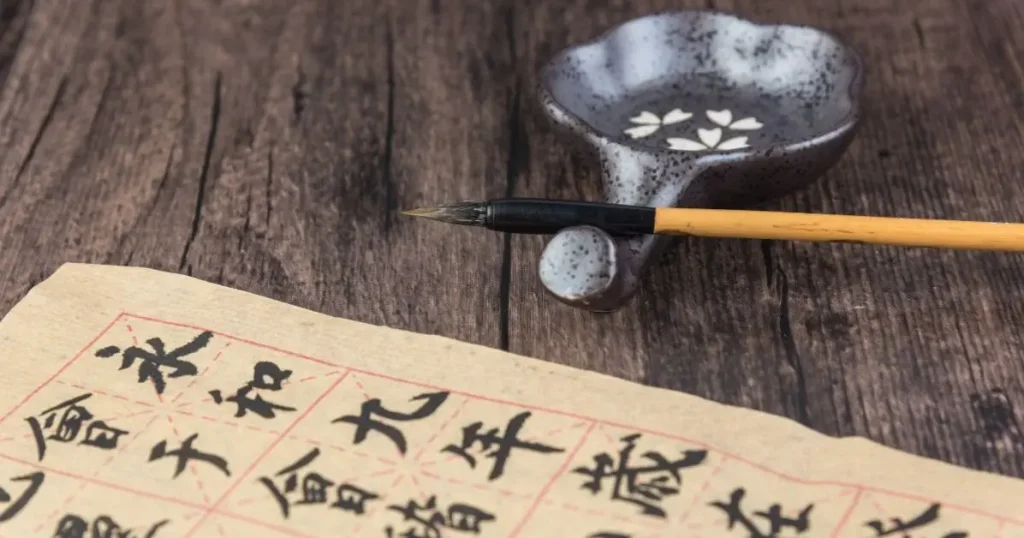 永和九年歲在
會于會稽